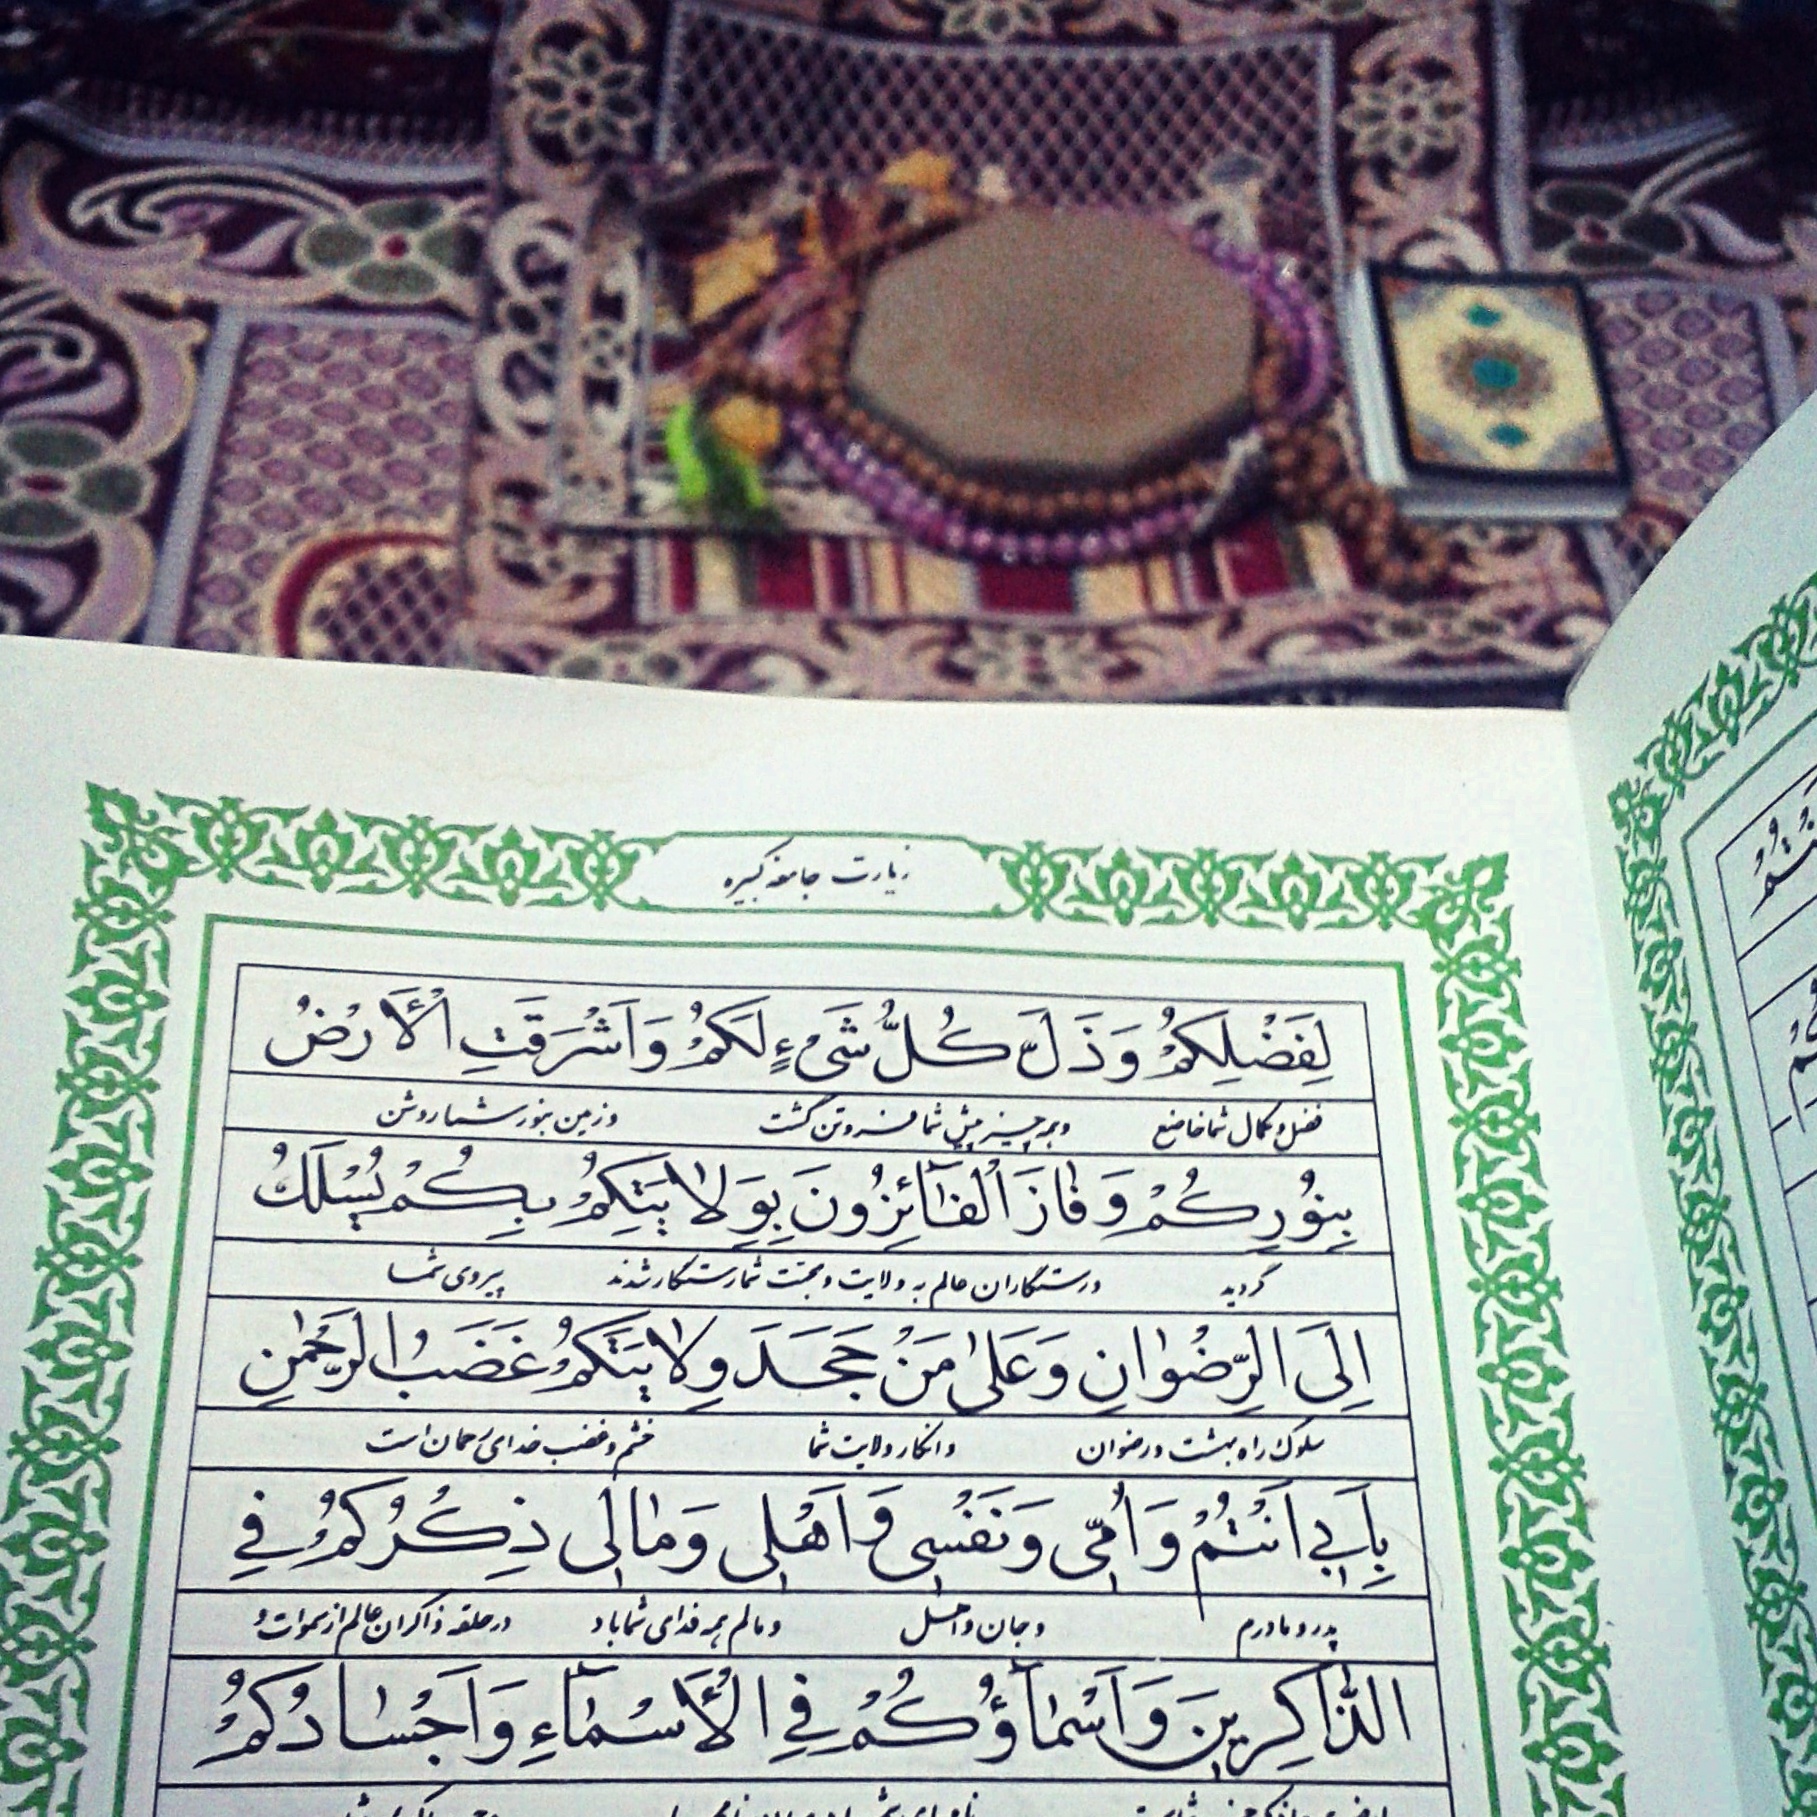 زیارت جامعه کبیره
لِفَضْلِكُمْ وَذَلَّ كُلُّ شَیْءٍ لَكُمْ وَاَشْرَقَتِ الْأَرْضُ
فضل و کمال شما خاضع و هر چیز پیش شما فروتن گشت و زمین بنور شما روشن
بِنُورِكُمْ وَفَازَ الْفَآئِزُونَ بِوَلایَتِكُمْ بِكُمْ یُسْلَكُ
گردید و رستگاران عالم به ولایت و محبت شما رستگار شدند پیروی شما
اِلَی الرِّضْوَانِ وَعَلیٰ مَنْ جَحَدَ وِلایَتَكُمْ غَضَبُ الرَّحْمٰنِ
سلوک راه بهشت و رضوان و انکار ولایت شما خشم و غضب خدای رحمان است
بِاَبِی اَنْتُمْ وَاُمّی وَنَفْسی وَاَهْلی وَمالی ذِكْرُكُمْ فِی
پدر و مادرم و جان و اهل و مالم همه فدای شما باد در حلقه ذاکران عالم از سموات و
الذّاكِرینَ وَاَسْمآؤُكُمْ فِی الْأَسْمآءِ وَاَجْسادُكُمْ